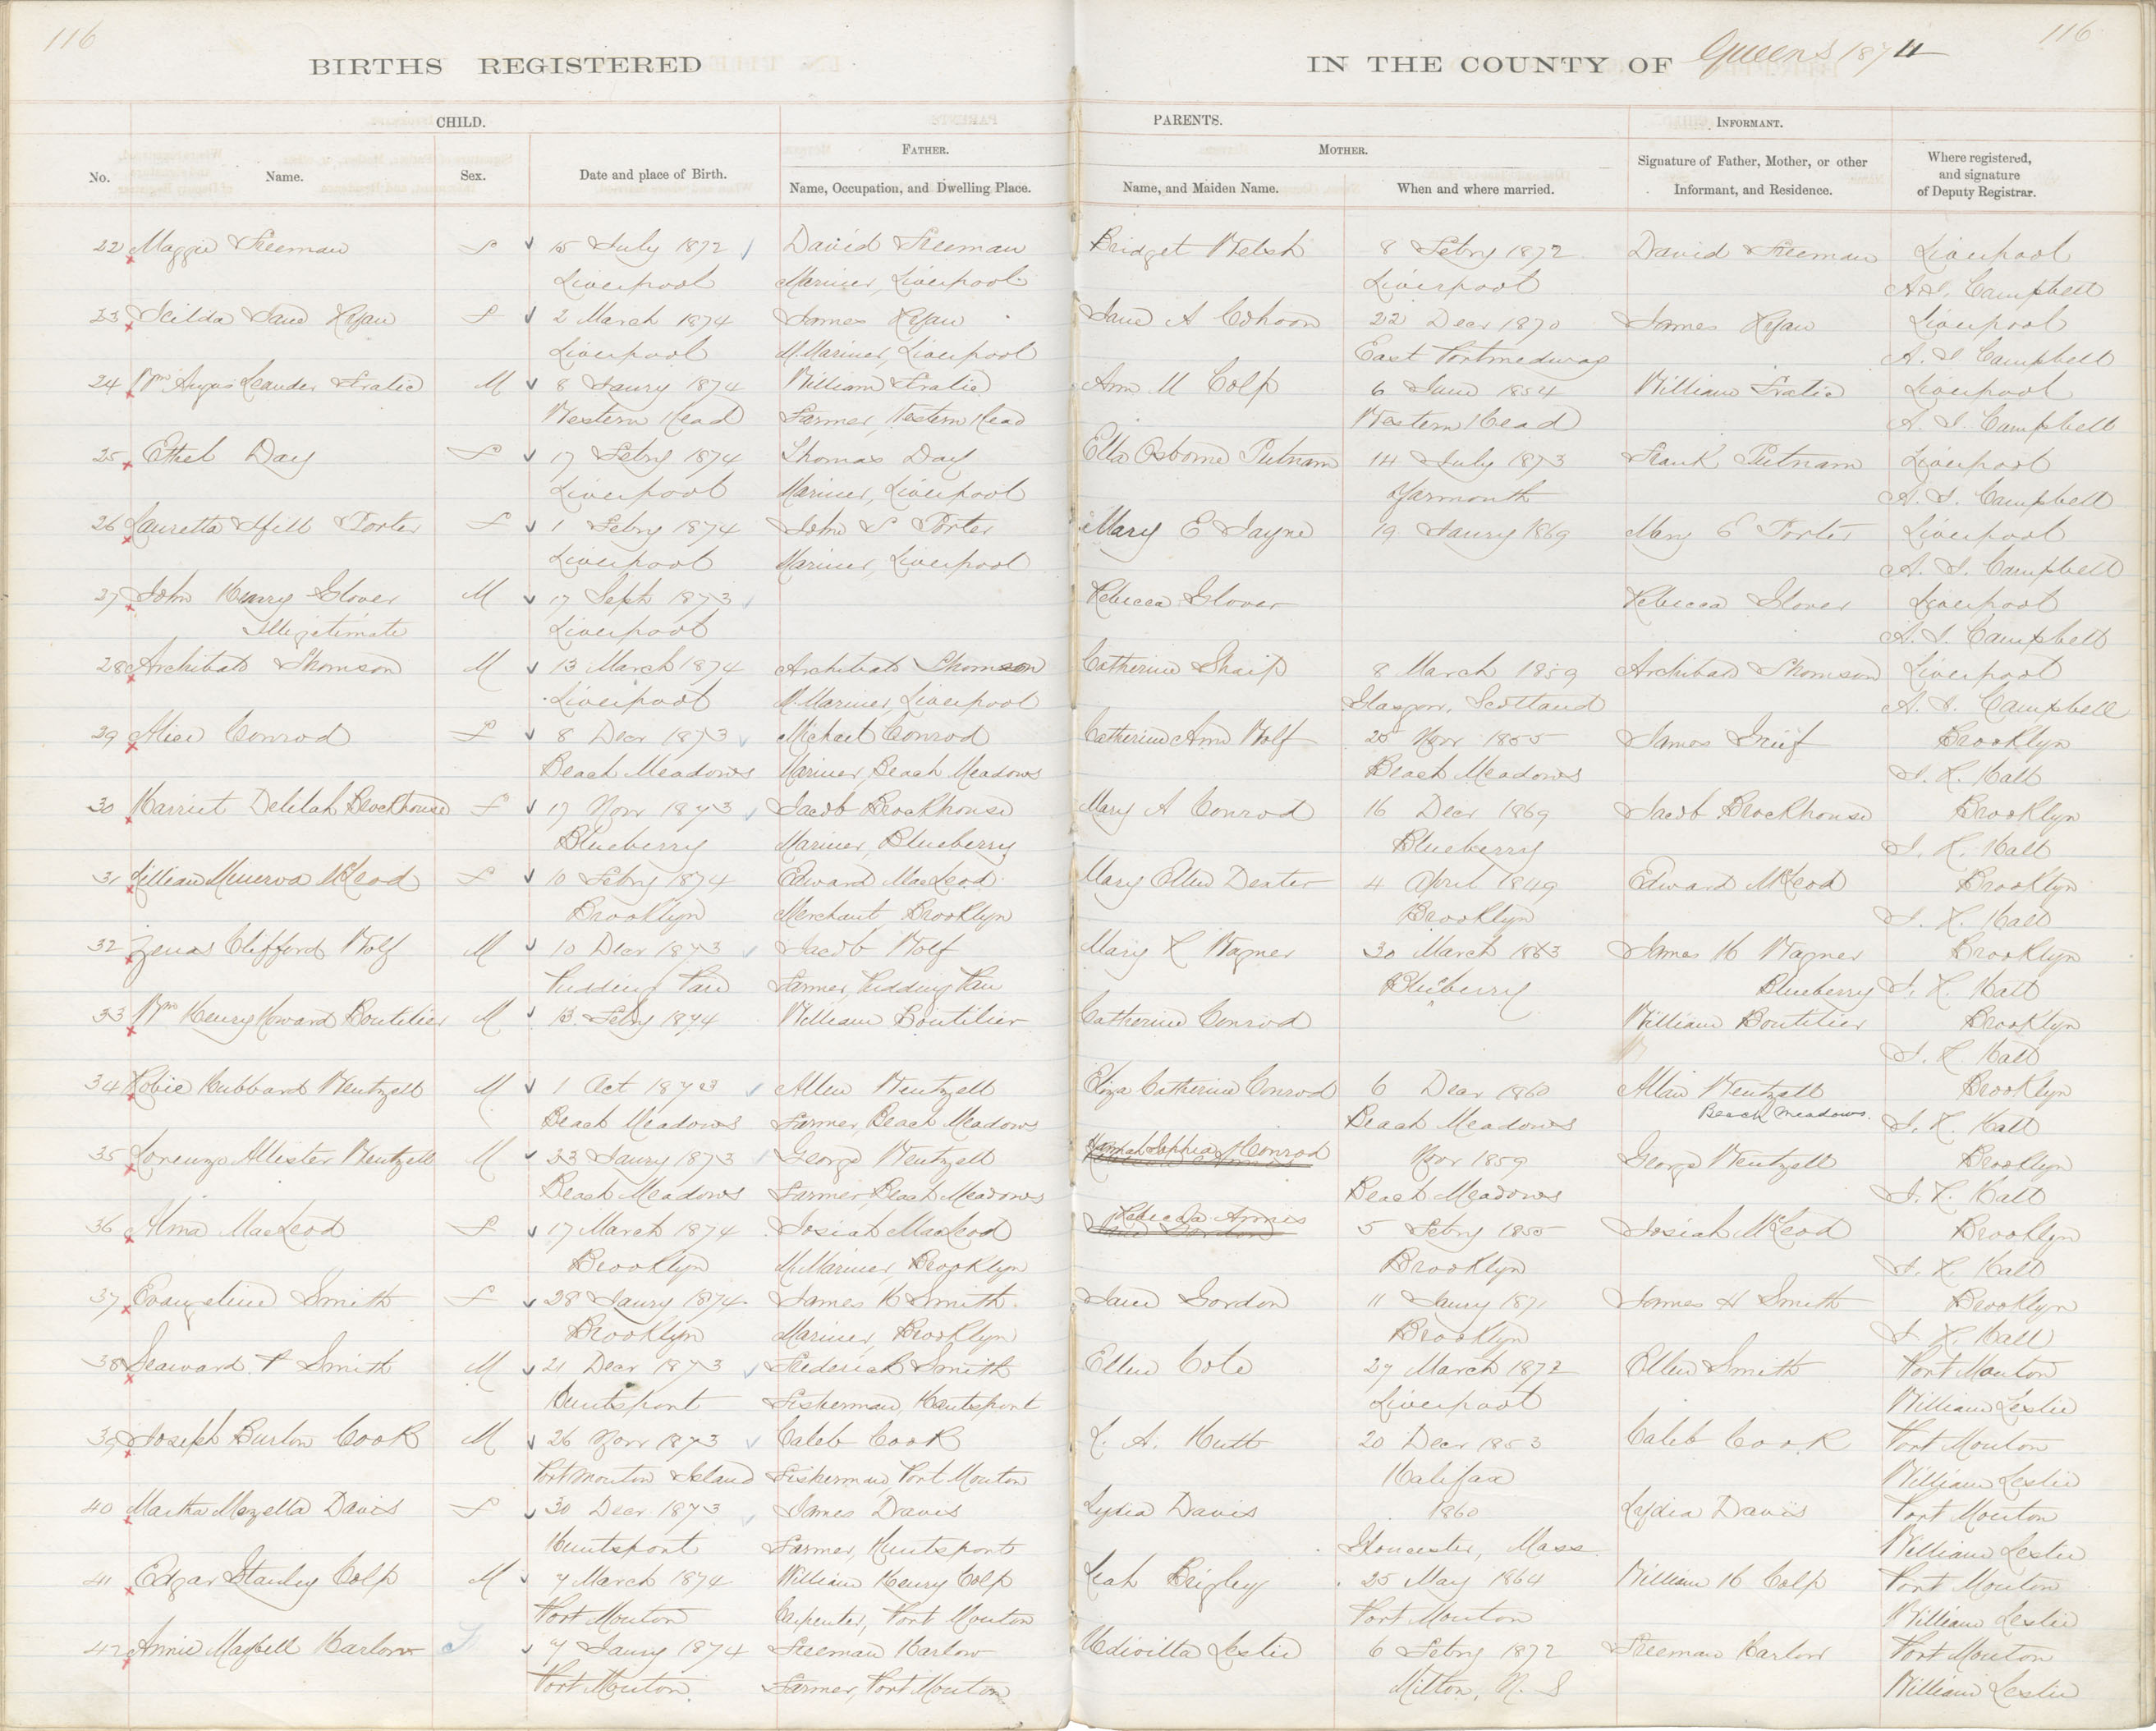 116
116
BIRTHS REGISTERED
IN THE COUNTY OF Queens 1874
CHILD.
PARENTS.
INFORMANT.
FATHER.
MOTHER.
No.
Name.
Sex.
Date and place of Birth.
Name, Occupation, and Dwelling Place.
Name, and Maiden Name.
When and where married.
Signature of Father, Mother, or other
Informant, and Residence.
Where registered,
and signature
of Deputy Registrar.
22 Maggie Freeman F 15 July 1872 David Freeman Bridget Welsh 8 Febry 1872 David Freeman Liverpool
Liverpool Mariner, Liverpool Liverpool A. I. Campbell
23 Jane Ryan F 2 March 1874 James Ryan Jane A Cohoon 22 Decr 1870 James Ryan Liverpool
Liverpool M. Mariner, Liverpool East Portmedway A. I. Campbell
24 Wm Angus Leander Fralic M 8 Jaury 1874 William Fralic Ann M Colp 6 June 1854 William Fralic Liverpool
Western Head Farmer, Western Head Western Head A. I. Campbell
25 Ethel Day F 17 Febry 1874 Thomas Day Ella Osborne Putnam 14 July 1873 Frank Putnam Liverpool
Liverpool Mariner, Liverpool Yarmouth A. I. Campbell
26 Lauretta Hill Porter F 1 Febry 1874 John S Porter Mary E Jayne 19 Jaury 1869 Mary E Porter Liverpool
Liverpool Mariner, Liverpool A. I. Campbell
27 John Henry Glover M 17 Sept 1873 Rebecca Glover Rebecca Glover Liverpool
Illegitimate Liverpool A. I. Campbell
28 Archibald Thomson M 13 March 1874 Archibald Thomson Catherine Sharp 8 March 1859 Archibald Thomson Liverpool
Liverpool M. Mariner, Liverpool Glasgow, Scotland A. I. Campbell
29 Alice Conrod F 8 Decr 1873 Michael Conrod Catherine Ann Wolf 25 Novr 1855 James Greif Brooklyn
Beach Meadows Mariner, Beach Meadows Beach Meadows Hall
30 Harriet Delilah Brockhouse F 17 Novr 1873 Jacob Brockhouse Mary A Conrod 16 Decr 1869 Jacob Brockhouse Brooklyn
Blueberry Mariner, Blueberry Blueberry Hall
31 Lillian Minerva McLeod F 10 Febry 1874 Edward MacLeod Mary Ellen Dexter 4 April 1849 Edward McLeod Brooklyn
Brooklyn Merchant, Brooklyn Brooklyn Hall
32 Zenas Clifford Wolf M 10 Decr 1873 Jacob Wolf Mary Wagner 30 March 1863 James H Wagner Brooklyn
Pudding Pan Farmer, Pudding Pan Blueberry Blueberry Hall
33 Wm Henry Howard Boutilier M 13 Febry 1874 William Boutilier Catherine Conrod William Boutilier Brooklyn
Hall
34 Robie Hubbard Wentzell M 1 Oct 1873 Allen Wentzell Eliza Catherine Conrod 6 Decr 1860 Allan Wentzell Brooklyn
Beach Meadows Farmer, Beach Meadows Beach Meadows Beach Meadows. Hall
35 Lorenzo Allister Wentzell M 23 Jaury 1873 George Wentzell Hannah Sophia Conrod Novr 1859 George Wentzell Brooklyn
Beach Meadows Farmer, Beach Meadows Beach Meadows Hall
36 Alma MacLeod F 17 March 1874 Josiah MacLeod Rebecca Annis Jane Gordon 5 Febry 1855 Josiah McLeod Brooklyn
Brooklyn M. Mariner, Brooklyn Brooklyn Hall
37 Evangeline Smith F 28 Jaury 1874 James H Smith Jane Gordon 11 Jaury 1871 James H Smith Brooklyn
Brooklyn Mariner, Brooklyn Brooklyn Hall
38 Seaward P Smith M 21 Decr 1873 Frederick Smith Ellen Cole 27 March 1872 Ellen Smith Port Mouton
Huntspoint Fisherman, Huntspoint Liverpool William Leslie
39 Joseph Burton Cook M 26 Novr 1873 Caleb Cook L. A. Hutt 20 Decr 1853 Caleb Cook Port Mouton
Port Mouton Island Fisherman, Port Mouton Halifax William Leslie
40 Martha Mozella Davis F 30 Decr 1873 James Davis Lydia Davis 1860 Lydia Davis Port Mouton
Huntspoint Farmer, Huntspoint Gloucester, Mass. William Leslie
41 Edgar Stanley Colp M 7 March 1874 William Henry Colp Leah Brigley 25 May 1864 William H Colp Port Mouton
Port Mouton Carpenter, Port Mouton Port Mouton William Leslie
42 Annie Maybell Harlow F 7 Jaury 1874 Freeman Harlow Leslie 6 Febry 1872 Freeman Harlow Port Mouton
Port Mouton Farmer, Port Mouton Milton, N. S William Leslie